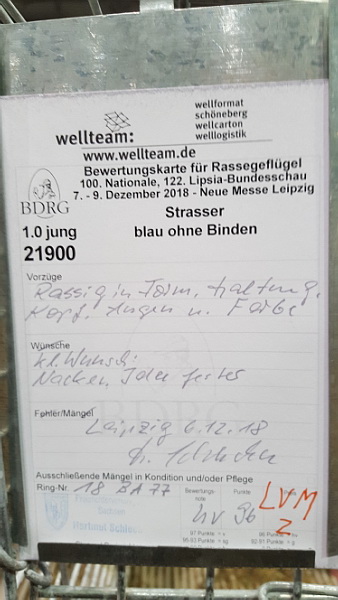 wellformat
schöneberg
wellcarton
welllogistik
wellteam:
www.wellteam.de
Bewertungskarte für Rassegeflügel
100. Nationale, 122. Lipsia-Bundesschau
7. - 9. Dezember 2018 - Neue Messe Leipzig
BDRG
Strasser
1.0 jung blau ohne Binden
21900
Vorzüge
Rassig in Form, Haltung,
Kopf, Augen u. Farbe
Wünsche
kl. Wunsch:
Nacken Idee fester
Fehler/Mängel
Leipzig 6.12.18
Ausschließende Mängel in Kondition und/oder Pflege
Ring-Nr. 18 BA 77
Bewertungs-
note
Punkte
hv 96
LVM
2
97 Punkte = v
96 Punkte = hv